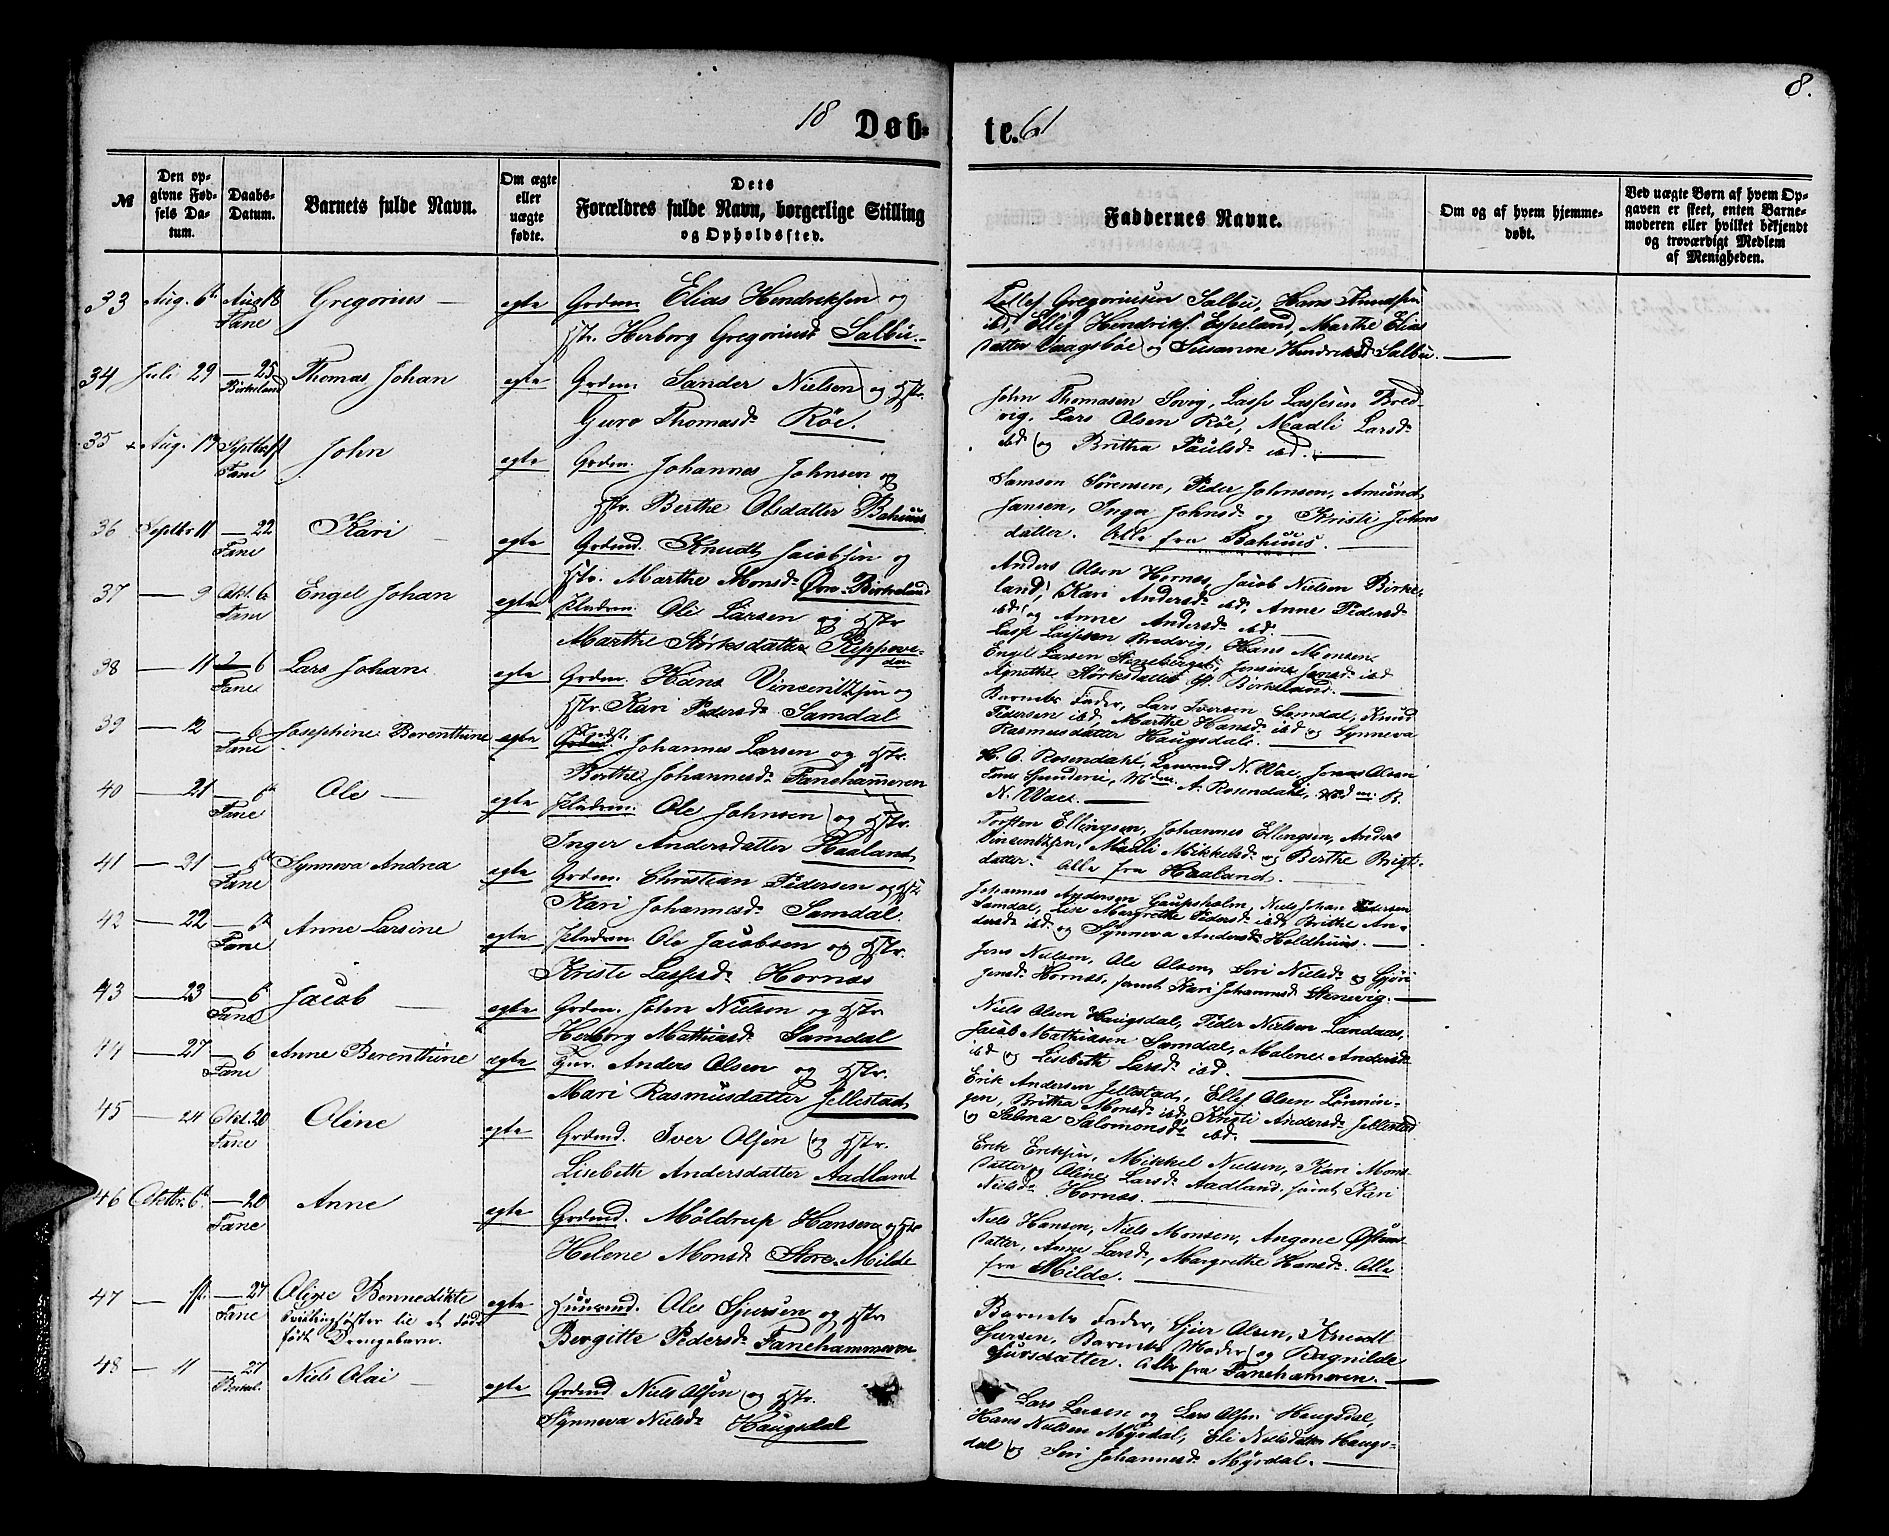 8.
18 Døb- te. 61
№
Den op-
givne Fød-
sels Da-
tum.
Daabs-
Datum.
Barnets fulde Navn.
Om ægte
eller
uægte
fødte.
Dets
Forældres fulde Navn, borgerlige Stilling
og Opholdssted.
Faddernes Navne.
Om og af hvem hjemme-
døbt.
Ved uægte Børn af hvem Op-
gaven er skeet, enten Barne-
moderen eller hvilket bekjendt
og troværdigt Medlem
af Menigheden.
33 Aug. 6te Aug 18 Gregorius — egte Grdm. Elias Hendriksen og
Fane
Hstr. Herborg Gregoriusd Salbu.
Ellef Gregoriusen Salbu, Hans Knudsen
ibd, Ellef Hendriks. Espeland, Marthe Elias
datter Vaagsböe og Susanne Hendriksd Salbu.
34 Juli 29 — 25 Thomas Johan egte Grdm. Sander Nielsen og Hstr.
Birkeland
Guro Thomasdr Röe.
John Thomasen Sovig, Lasse Lassesen Bred-
vig, Lars Olsen Röe, Madli Larsdr
ibd og Britha Paulsdr ibd.
35 + Aug. 19 Septbr 1 John egte Grdm. Johannes Johnsen og
Fane
Hstr. Berthe Olsdatter Bahuus
Samson Sörensen, Peder Johnsen, Amund
Jansen, Inger Johnsdr og Kristi Johns
datter. Alle fra Bahuus.
36 Septbr 11 — 22 Kari — egte Grdmd. Knudt Jacobsen og
Fane
Hstr. Marthe Monsdr Övre-Birkeland
Anders Olsen Hornæs, Jacob Nielsen Birke-
land, Kari Andersdr ibd, Anne Pedersdr
ibd og Anne Andersdr ibd.
37 — 9 Okt. 6 Engel Johan egte Pladsm. Ole Larsen og Hstr
Fane
Marthe Störksdatter Skeppeve-
den
Lasse Lassesen Bredvig, Hans Monsen
Engel Larsen Steneberget, Jensine Jonsdr ibd
Agnethe Störksdatter Birkeland.
38 — 11 — 6 Lars Johan egte Grdm. Hans Vincentzsen og
Fane
Hstr. Kari Pedersdr Samdal
Barnets Fader, Lars Iversen Samdal, Knud
Pedersen ibd, Marthe Hansdr ibd og Synneva
Rasmusdatter Haugsdal.
39 — 12 — 6 Josephine Berenthine egte Johannes Larsen og Hstr.
Fane
Berthe Johannesdr Fanehammeren
H. O. Rosendahl, N. Wae, Jonas Olsen
A. Rosendahl,
N. Waes.
40 — 21 — 6te Ole — egte Pladsm. Ole Johnsen og Hstr.
Fane
Inger Andersdatter Haaland
Torsten Ellingsen, Johannes Ellingsen, Anders
Vincentzsen, Madli Mikkelsdr og Berthe Brigt-
datter. Alle fra Haaland.
41 — 21 — 6te Synneva Andrea egte Grdm. Christian Pedersen og Hstr
Fane
Kari Johannesdr Samdal.
Johannes Andersen Gaupsholm, Niels Johan Pedersen
Samdal, Lise Margrethe Pedersdr ibd, Brithe An-
dersdr ibd og Synneva Andersdr Holdhuus.
42 — 22 — 6te Anne Larsine egte Pladsm. Ole Jacobsen og Hstr.
Fane
Kriste Lassesdr Hornæs
Jens Nielsen, Ole Olsen, Seri Nielsdr og Gjöri
Jensdr Hornæs, samt Kari Johannesd Stenevig.
43 — 23 — 6te Jacob — egte Grdm. John Nielsen og Hstr
Fane
Herborg Mathiasdr Samdal
Niels Olsen Haugsdal, Peder Nielsen Landaas,
Jacob Mathiasen Samdal, Malene Andersdr
ibd og Lisebeth Larsdr ibd.
44 — 27 — 6 Anne Berenthine egte Anders Olsen og Hstr.
Fane
Mari Rasmusdatter Jellestad
Erik Andersen Jellestad, Ellef Olsen Lönnin-
gen, Britha Monsdr ibd, Kristi Andersdr Jellestad
og Salma Salomonsdr ibd.
45 — 24 Okt. 20 Oline egte Grdmd. Iver Olsen og Hstr.
Fane
Lisebeth Andersdatter Aadland
Erik Eriksen, Mikkel Nielsen, Kari Mons-
datter og Oline Larsdr Aadland, samt Kari
Nielsdr Hornæs.
46 Oktbr. 6te — 20 Anne egte Grdmd. Möldrup Hansen og Hstr
Fane
Helene Monsdr Store-Milde
Niels Hansen, Niels Monsen, Angone Östens-
datter, Anne Larsdr, Margrethe Hansdr. Alle
fra Milde.
47 — — 27 Oline Bennedikte egte Huusmd. Ole Sjursen og Hstr
Fane
Tvillingsöster til et död-
födt Drengebarn.
Birgitte Pedersdr Fanehammeren
Barnets Fader, Sjur Olsen, Knudt
Sjursen, Barnets Moder og Ragnilde
Sjursdatter. Alle fra Fanehameren.
48 — 11 — 27 Niels Olai — egte Grdmd. Niels Olsen og Hstr.
Synneva Nielsdr Haugsdal
Lars Larsen og Lars Olsen Haugsdal,
Hans Nielsen Myrdal, Eli Nielsdatter Haugs-
dal og Seri Johannesdr Myrdal.